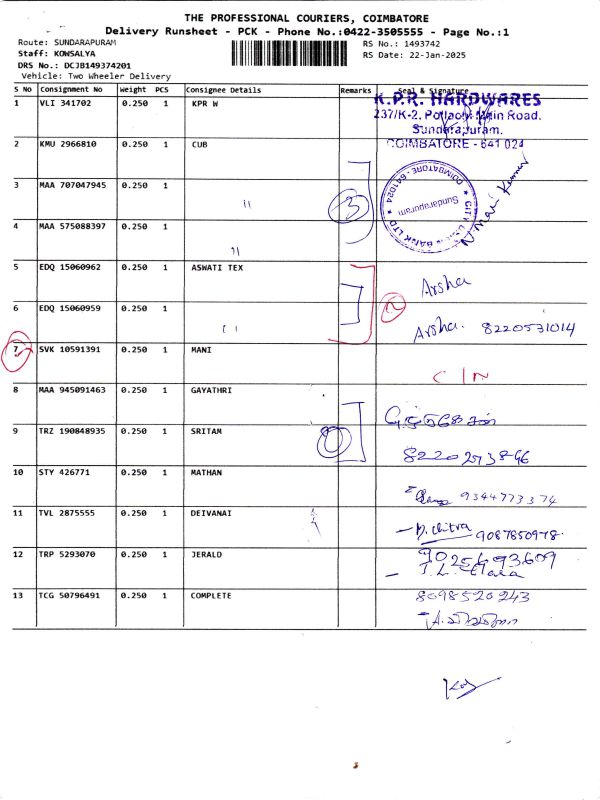 THE PROFESSIONAL COURIERS, COIMBATORE
Delivery Runsheet - PCK - Phone No.:0422-3505555 - Page No.:1
Route: SUNDARAPURAM
Staff: KOWSALYA
DRS No.: DCJB149374201
Vehicle: Two Wheeler Delivery
RS No.: 1493742
RS Date: 22-Jan-2025
S No Consignment No Weight PCS Consignee Details Remarks Seal & Signature
1 VLI 341702 0.250 1 KPR W
K.P.R. HARDWARES
237/K-2, Pollachi Main Road.
Sundarapuram.
COIMBATORE - 641 024
2 KMU 2966810 0.250 1 CUB
3 MAA 707047945 0.250 1 "
3
CITY UNION BANK LTD
Sundarapuram
COIMBATORE - 641024
4 MAA 575088397 0.250 1 "
5 EDQ 15060962 0.250 1 ASWATI TEX
Arsha
6 EDQ 15060959 0.250 1 "
2
Arsha. 8220531014
7 SVK 10591391 0.250 1 MANI
C/N
8 MAA 945091463 0.250 1 GAYATHRI
9 TRZ 190848935 0.250 1 SRITAM
10 STY 426771 0.250 1 MATHAN
9344773374
11 TVL 2875555 0.250 1 DEIVANAI
- D. chitra 9087850978
12 TRP 5293070 0.250 1 JERALD
9025693609
13 TCG 50796491 0.250 1 COMPLETE
8098520243